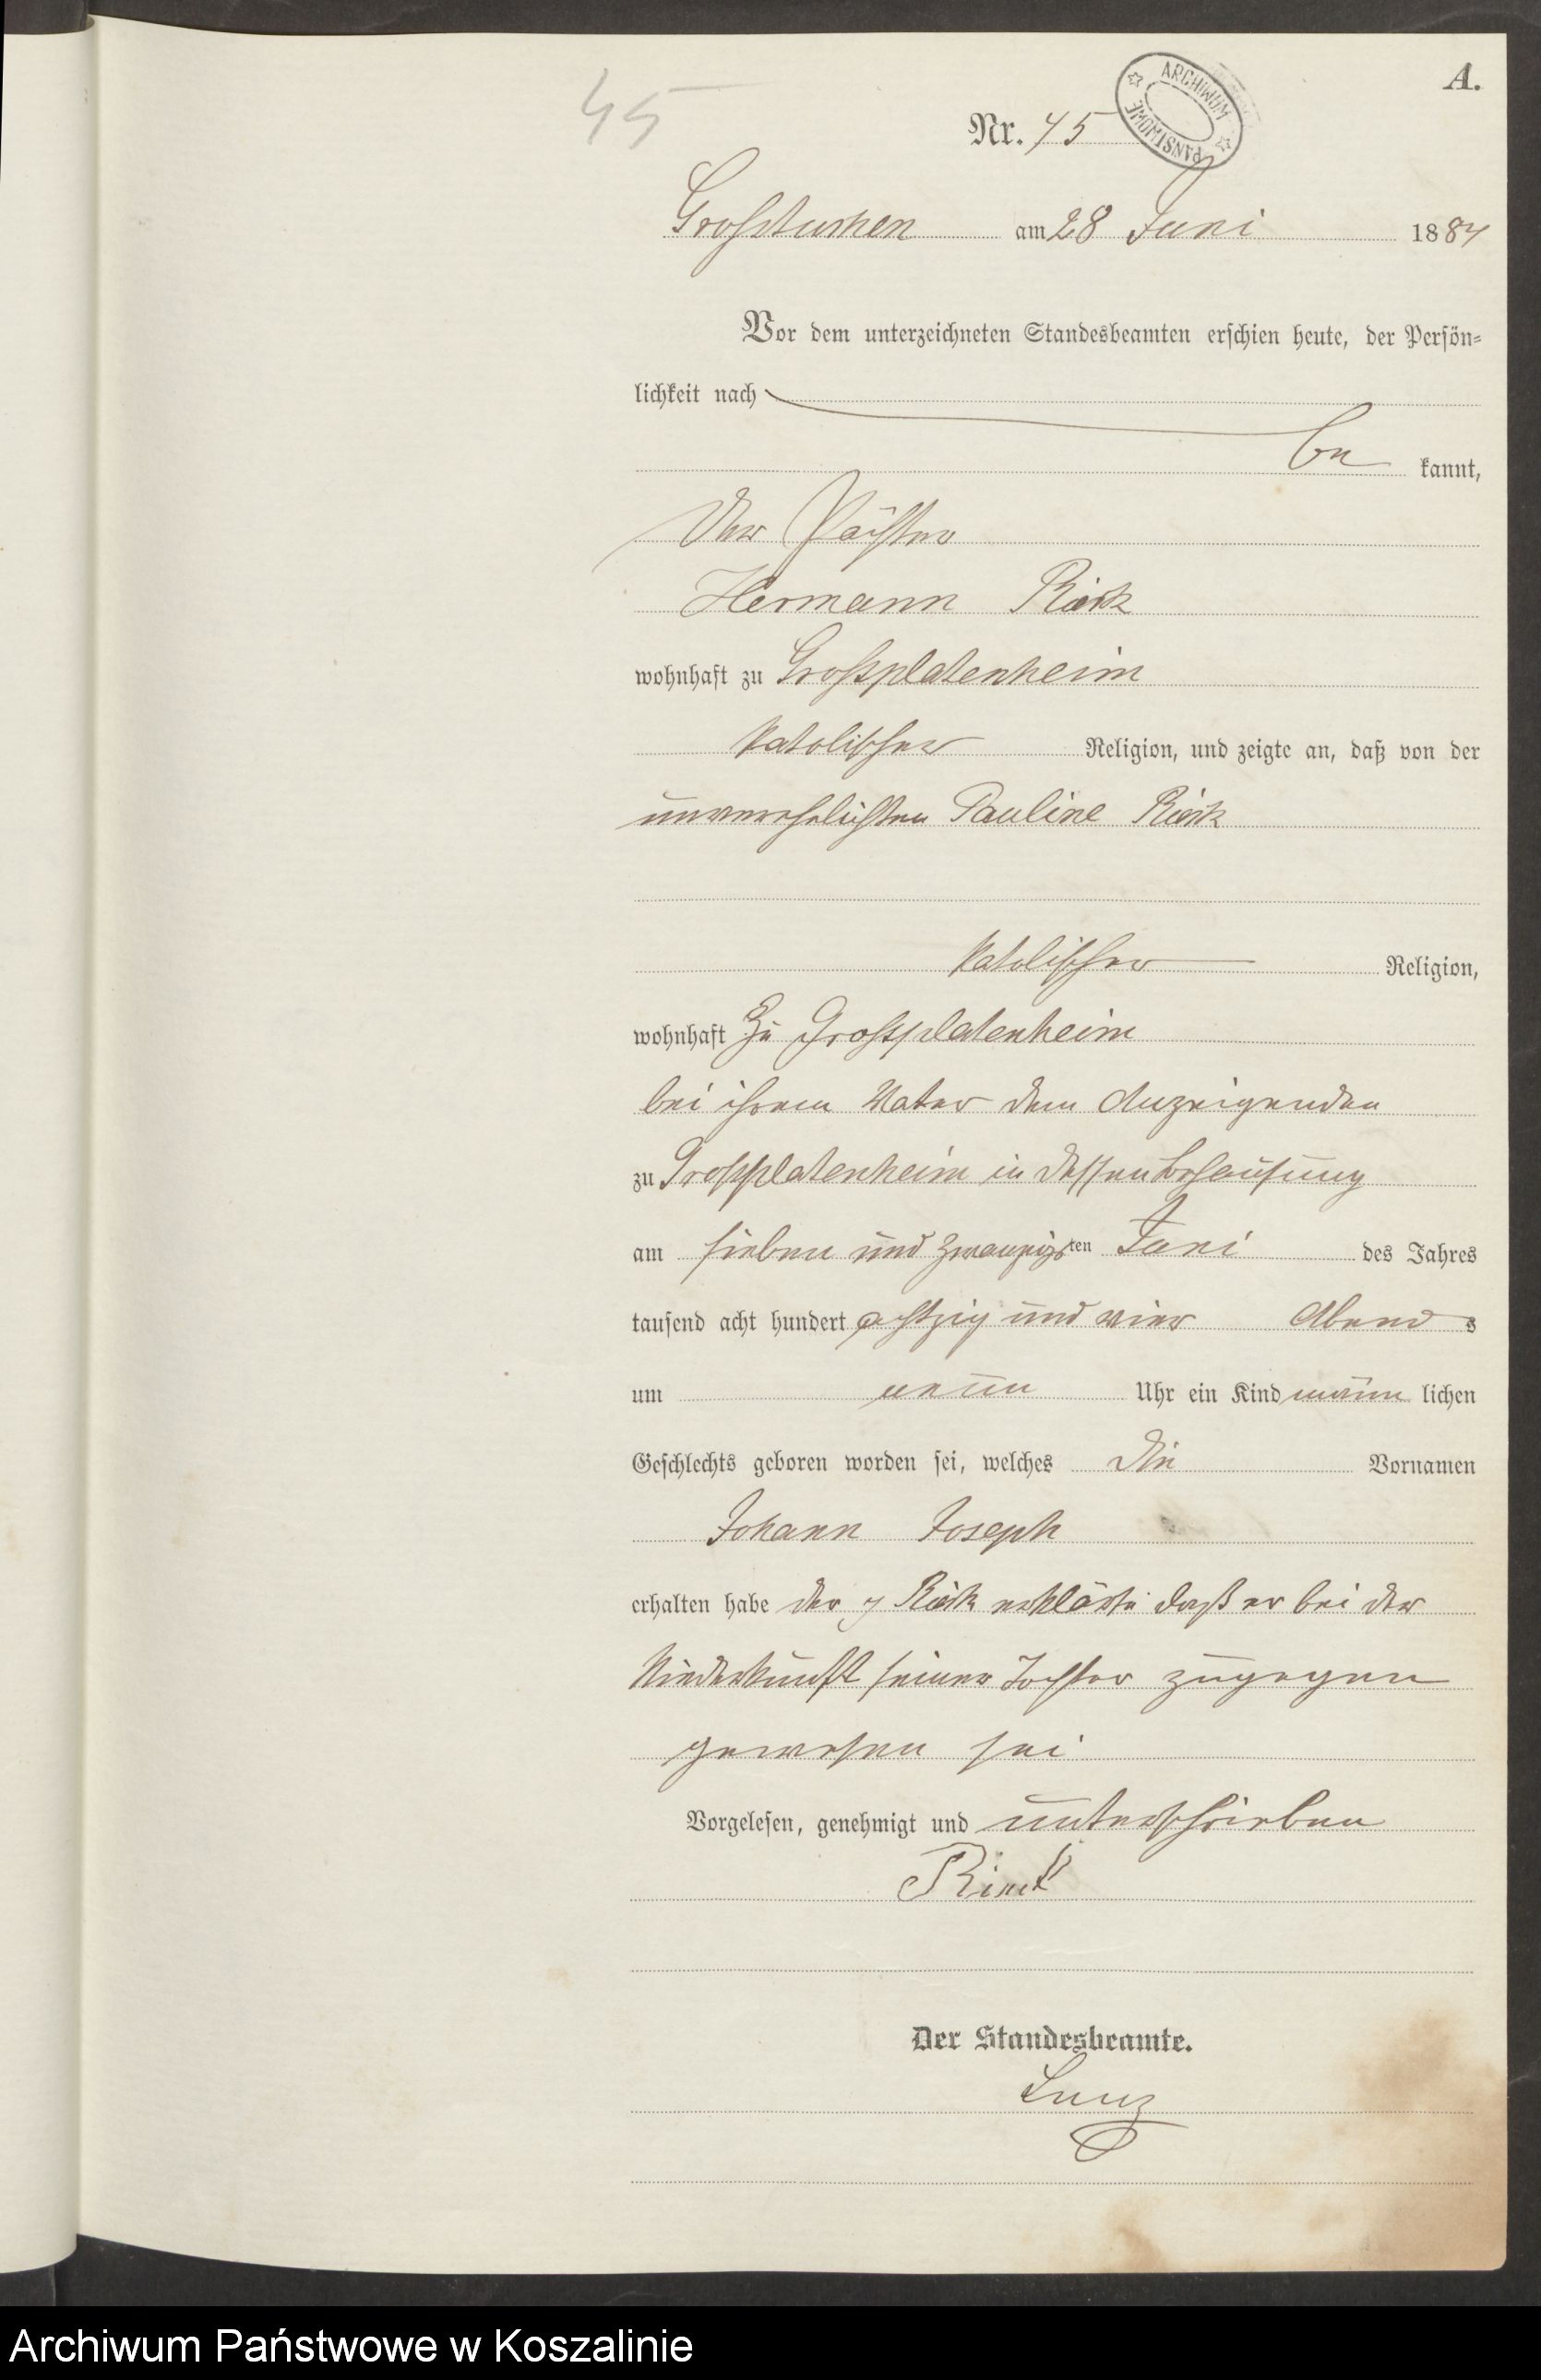 A.
45
Nr. 45
ARCHIWUM PAŃSTWOWE
Großtuchen am 28 Juni 1884
Vor dem unterzeichneten Standesbeamten erschien heute, der Persön-
lichkeit nach
be kannt,
der Pächter
Hermann Rieck
wohnhaft zu Grossplatenheim
katolischer Religion, und zeigte an, daß von der
unverehelichten Pauline Rieck
katolischer Religion,
wohnhaft zu Grossplatenheim
bei ihrem Vater dem Anzeigenden
zu Grossplatenheim in dessen Behausung
am sieben und zwanzigsten Juni des Jahres
tausend acht hundert achtzig und vier Abends
um neun Uhr ein Kind männ lichen
Geschlechts geboren worden sei, welches die Vornamen
Johann Joseph
erhalten habe der Rieck erklärte daß er bei der
Niederkunft seiner Tochter zugegen
gewesen sei
Vorgelesen, genehmigt und unterschrieben
Rieck
Der Standesbeamte.
Archiwum Państwowe w Koszalinie